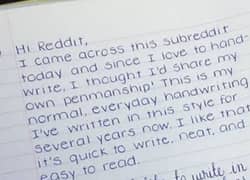 Hi Reddit,
I came across this subreddit
today and since I love to hand-
write, I thought I'd share my
own penmanship. This is my
normal, everyday handwriting
I've written in this style for
several years now. I like that
it's quick to write, neat, and
easy to read.
to write in